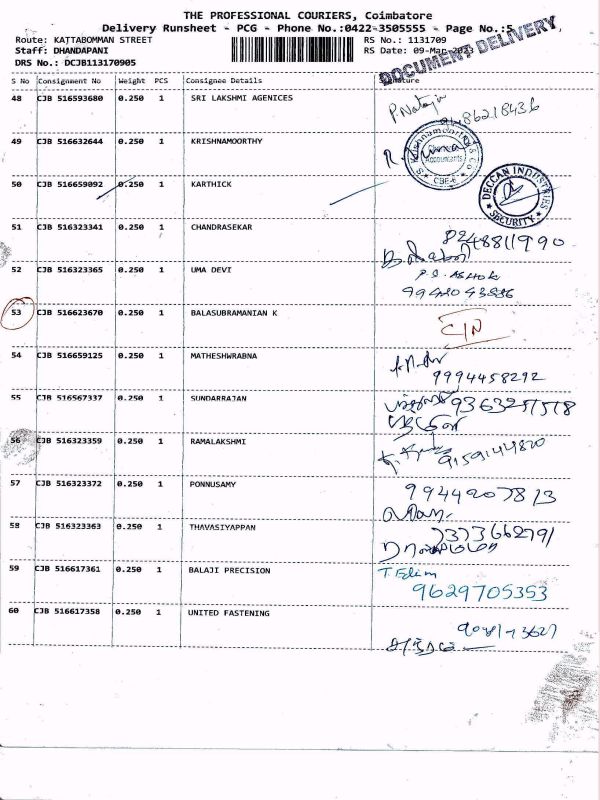 THE PROFESSIONAL COURIERS, Coimbatore
Delivery Runsheet - PCG - Phone No.:0422-3505555 - Page No.:5
DOCUMENT DELIVERY
Route: KATTABOMMAN STREET
RS No.: 1131709
Staff: DHANDAPANI
RS Date: 09-Mar-2023
DRS No.: DCJB113170905
S No Consignment No Weight PCS Consignee Details Signature
48 CJB 516593680 0.250 1 SRI LAKSHMI AGENICES
49 CJB 516632644 0.250 1 KRISHNAMOORTHY
50 CJB 516659092 0.250 1 KARTHICK
DECCAN INDUSTRIES
SECURITY
51 CJB 516323341 0.250 1 CHANDRASEKAR
8248811990
52 CJB 516323365 0.250 1 UMA DEVI
P.S. ASHOK
53 CJB 516623670 0.250 1 BALASUBRAMANIAN K
C/N
54 CJB 516659125 0.250 1 MATHESHWRABNA
9994458292
55 CJB 516567337 0.250 1 SUNDARRAJAN
56 CJB 516323359 0.250 1 RAMALAKSHMI
9159144820
57 CJB 516323372 0.250 1 PONNUSAMY
9944207813
58 CJB 516323363 0.250 1 THAVASIYAPPAN
7373662791
59 CJB 516617361 0.250 1 BALAJI PRECISION
9629705353
60 CJB 516617358 0.250 1 UNITED FASTENING